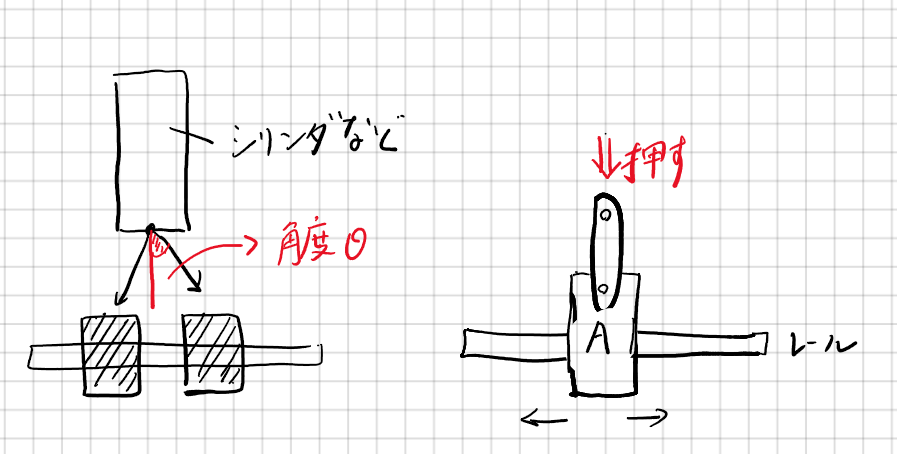 シリンダなど
角度θ
押す
A
レール